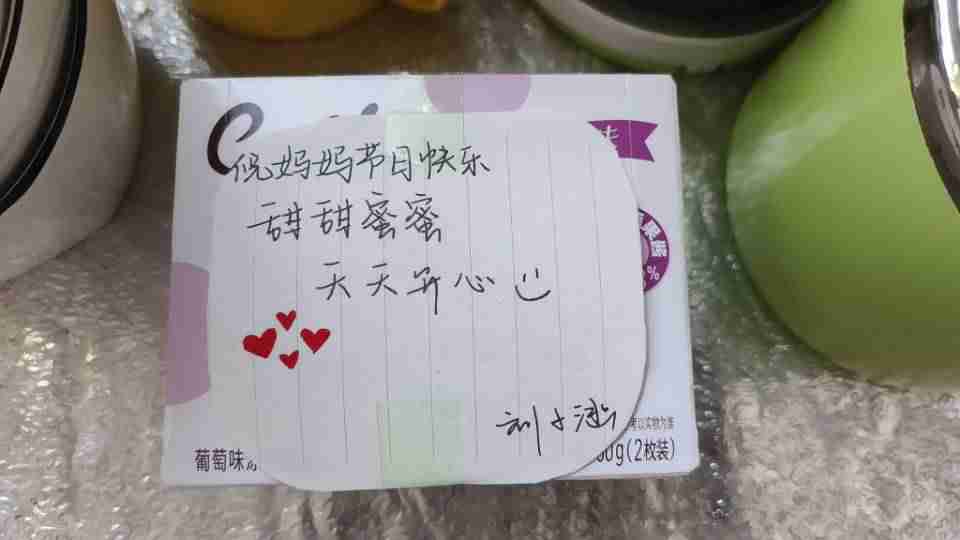 倪妈妈节日快乐
甜甜蜜蜜
天天开心
果酱
%
葡萄味
0g(2枚装)